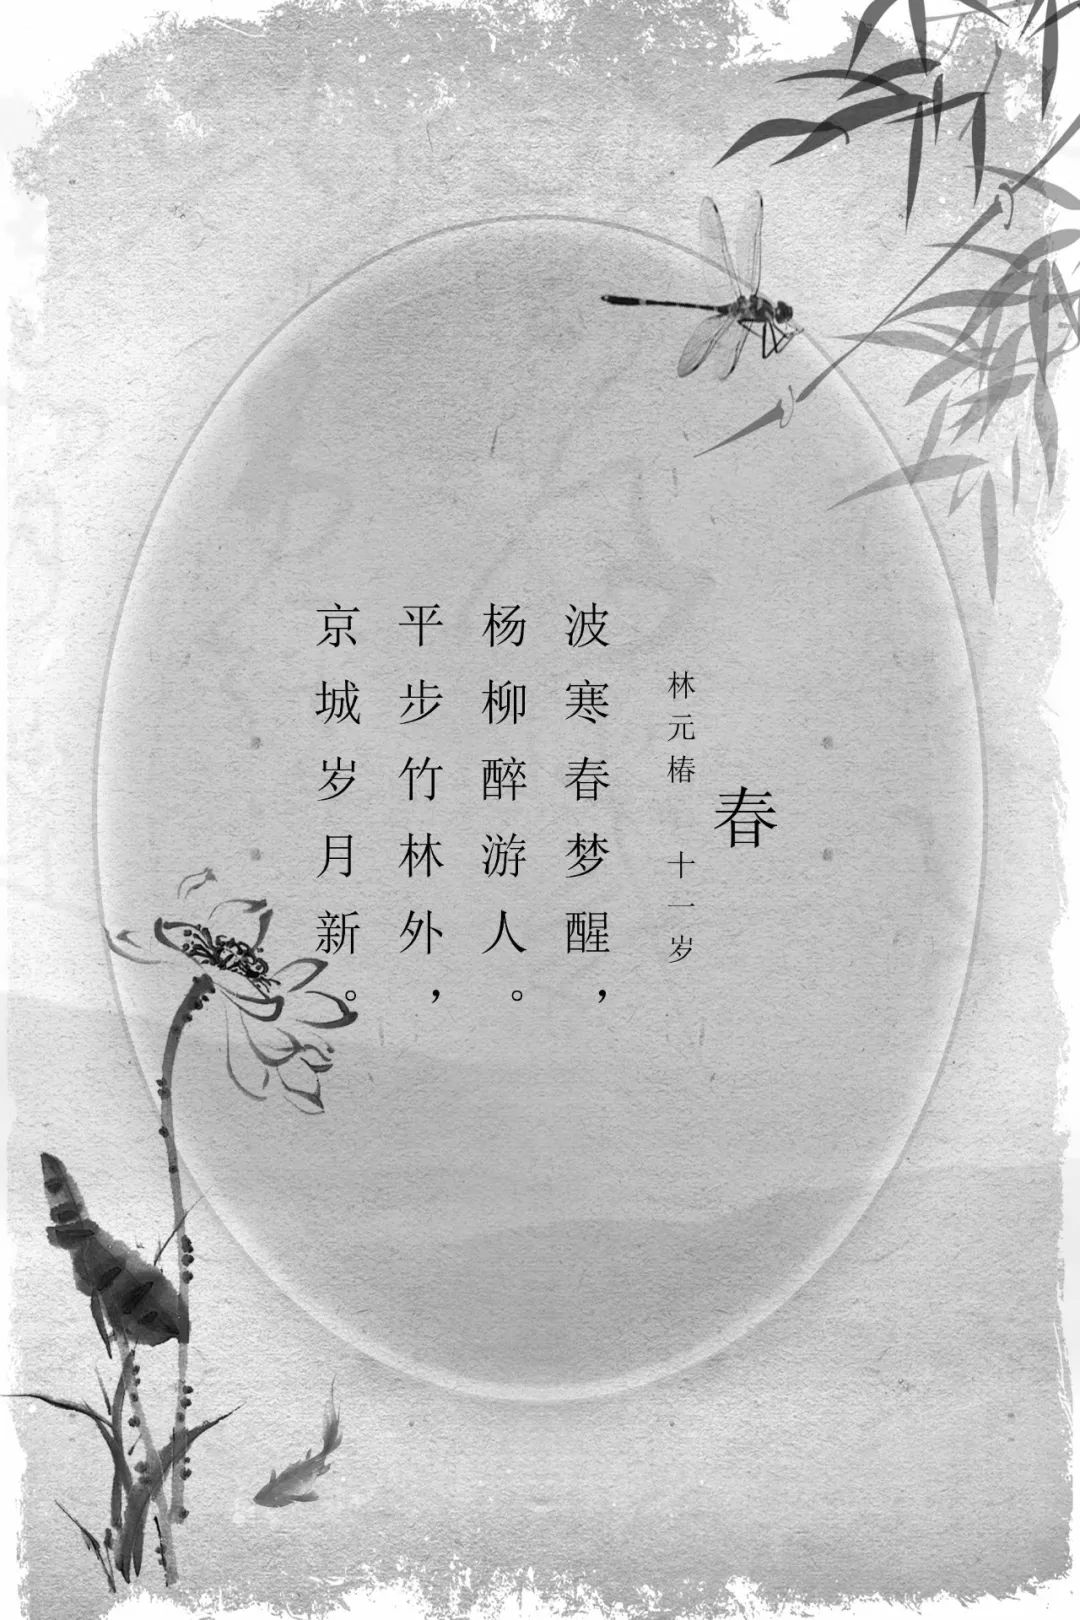 春
林元椿 十一岁
波寒春梦醒，
杨柳醉游人。
平步竹林外，
京城岁月新。